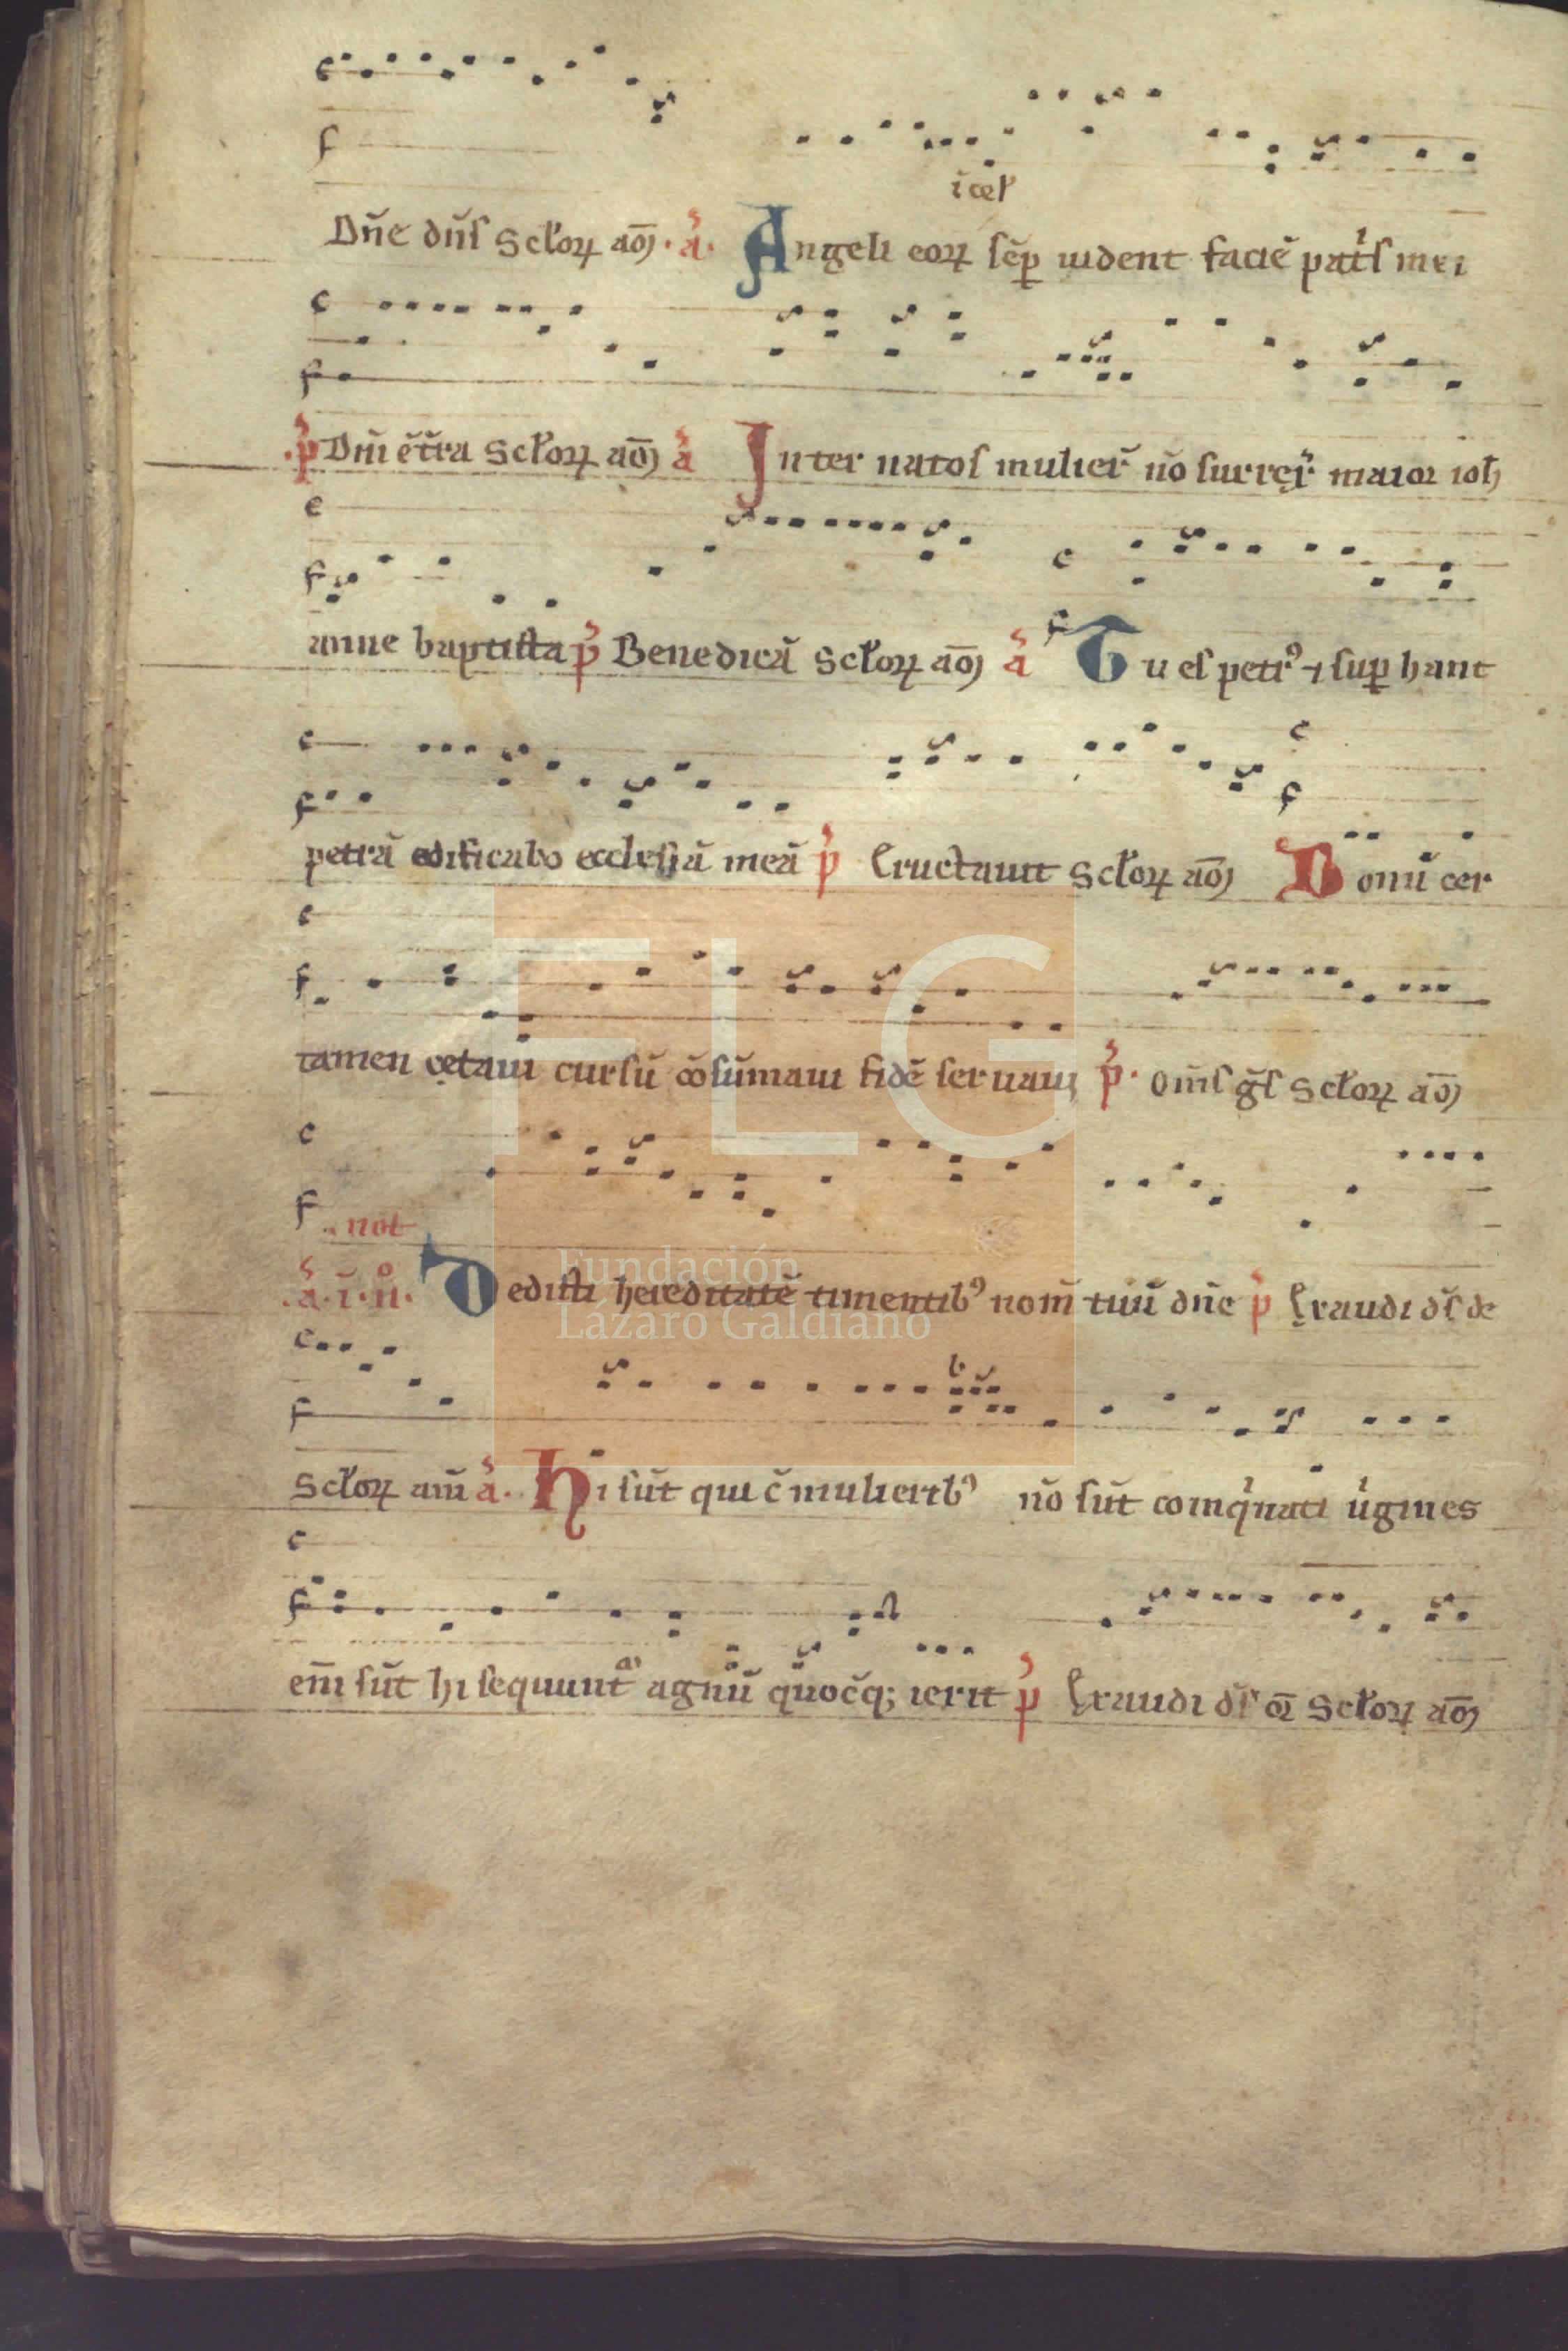 i cel'
Dñe dñs Scłoꝝ aō) · a͛ · Angeli eoꝝ sēꝑ uident faciē pat͛s mei
·p͛ Dñi ē t̄ra Scłoꝝ aō) a͛ Inter natos mulier̄ nō surrex͛ maior ioħ
anne baptista p͛ Benedicā Scłoꝝ aō) a͛ Tu es petrꝰ ⁊ suꝑ hanc
petrā edificabo ecclesiā meā p͛ Eructauit Scłoꝝ aō) Bonū cer
tamen c̨taui cursū cōsūmaui fidē seruaui p͛ · Om̄s ḡs Scłoꝝ aō)
not
· a͛ · ī · n͛ · Dedisti hereditatē timentibꝰ nom̄ tuū dñe p͛ Exaudi ds̄ de
Scłoꝝ am̄ a͛ · Hi sūt qui c̄ mulieribꝰ nō sūt coinq͛nati ũgines
em̄ sūt hi sequunt᷑ agnū quocq; ierit p͛ Exaudi ds̄ oꝛ̄ Scłoꝝ aō)
FLG
Fundación
Lázaro Galdiano